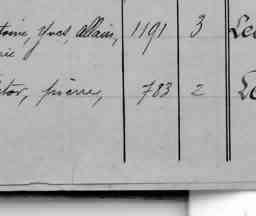 toine, Yves, Allain, 1191 3 Le
rie
ctor, pierre, 783 2 Le